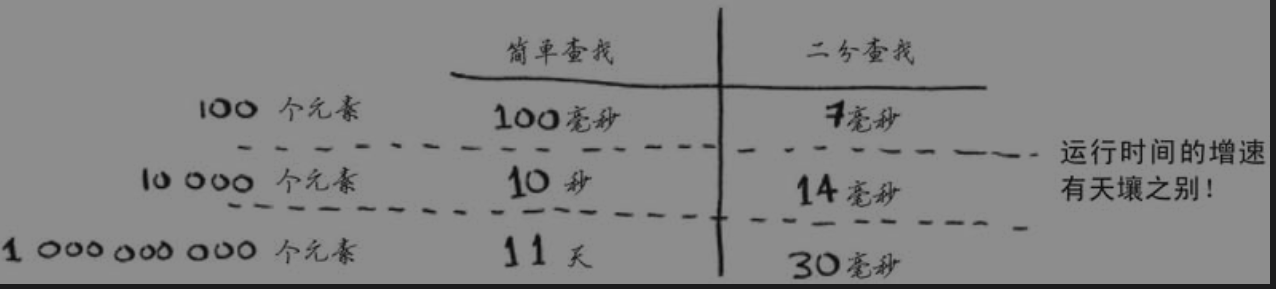 简单查找 二分查找
100 个元素 100毫秒 7毫秒
10 000 个元素 10 秒 14 毫秒
1 000 000 000 个元素 11 天 30 毫秒
运行时间的增速
有天壤之别！